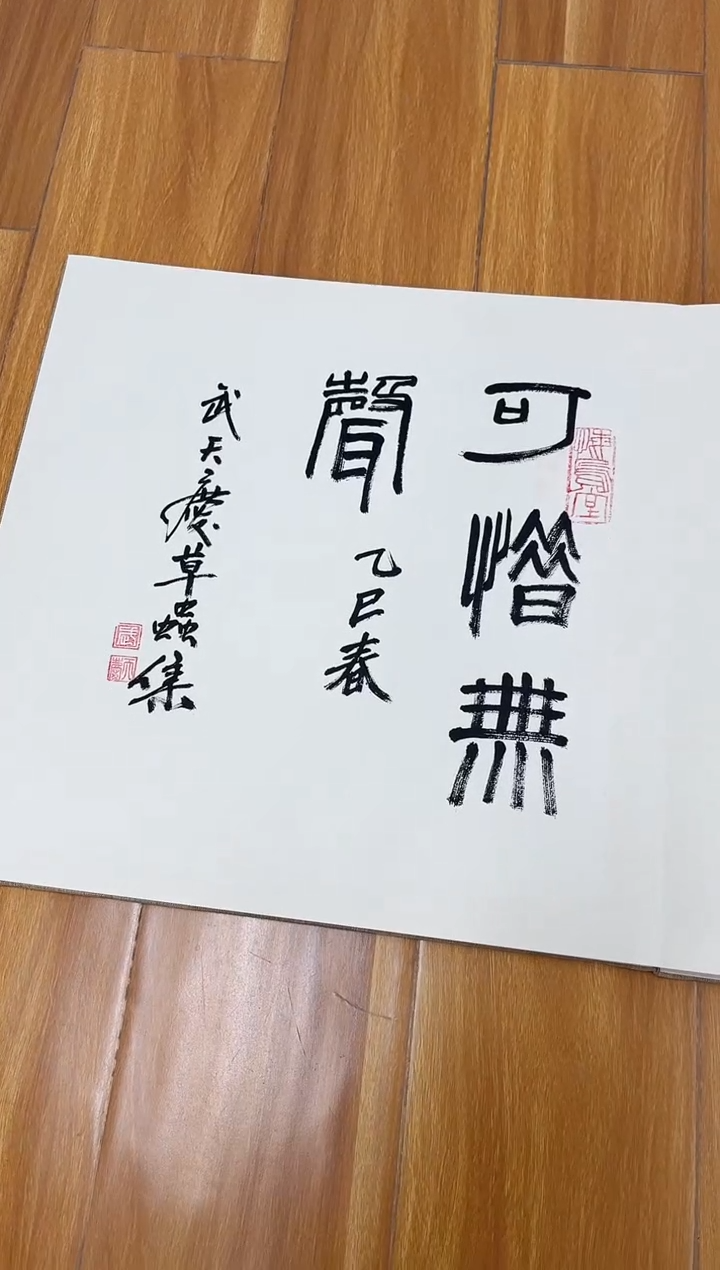 可惜無
聲
乙巳春
武天慶草蟲集